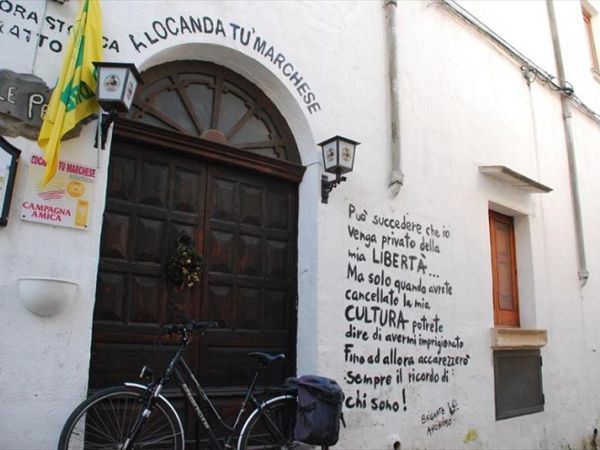 ORA STO
RATTO
LOCANDA TU' MARCHESE
LE
LOCANDA TU MARCHESE
CAMPAGNA
AMICA
Può succedere che io
venga privato della
mia LIBERTÀ...
Ma solo quando avrete
cancellato la mia
CULTURA potrete
dire di avermi imprigionato
Fino ad allora accarezzerò
sempre il ricordo di
chi sono!
BRIGANTE
ANONIMO